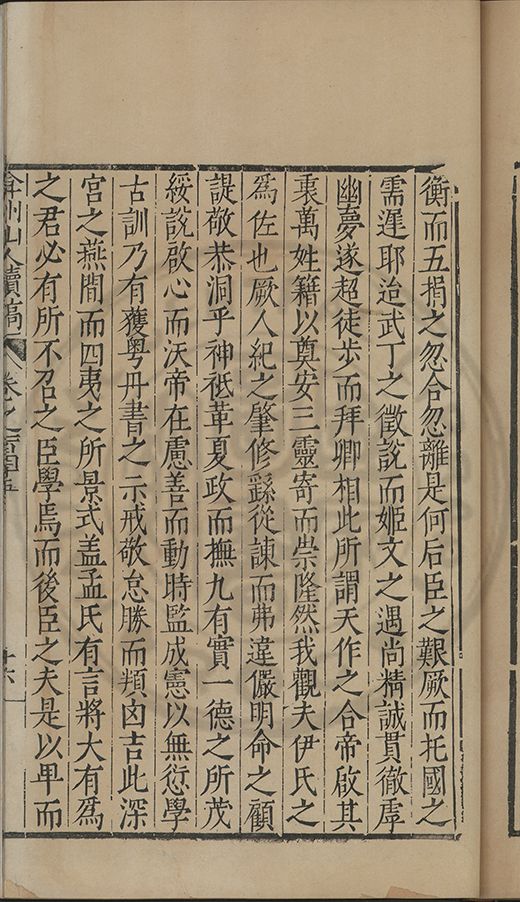 衡而五捐之忽合忽離是何后臣之艱厥而托國之
需遲耶迨武丁之徵說而姬文之遇尚精誠貫徹虖
幽夢遂超徒步而拜卿相此所謂天作之合帝啟其
衷萬姓籍以奠安三靈寄而崇隆然我觀夫伊氏之
爲佐也厥人紀之肇修繇從諫而弗違儼明命之顧
諟敬恭洞乎神祗革夏政而撫九有實一德之所茂
綏說啟心而沃帝在慮善而動時監成憲以無愆學
古訓乃有獲粤丹書之示戒敬怠勝而類囟吉此深
宮之燕閒而四夷之所景式盖孟氏有言將大有爲
之君必有所不召之臣學焉而後臣之夫是以卑而
弇州山人續稿 卷之一百四十五 十六